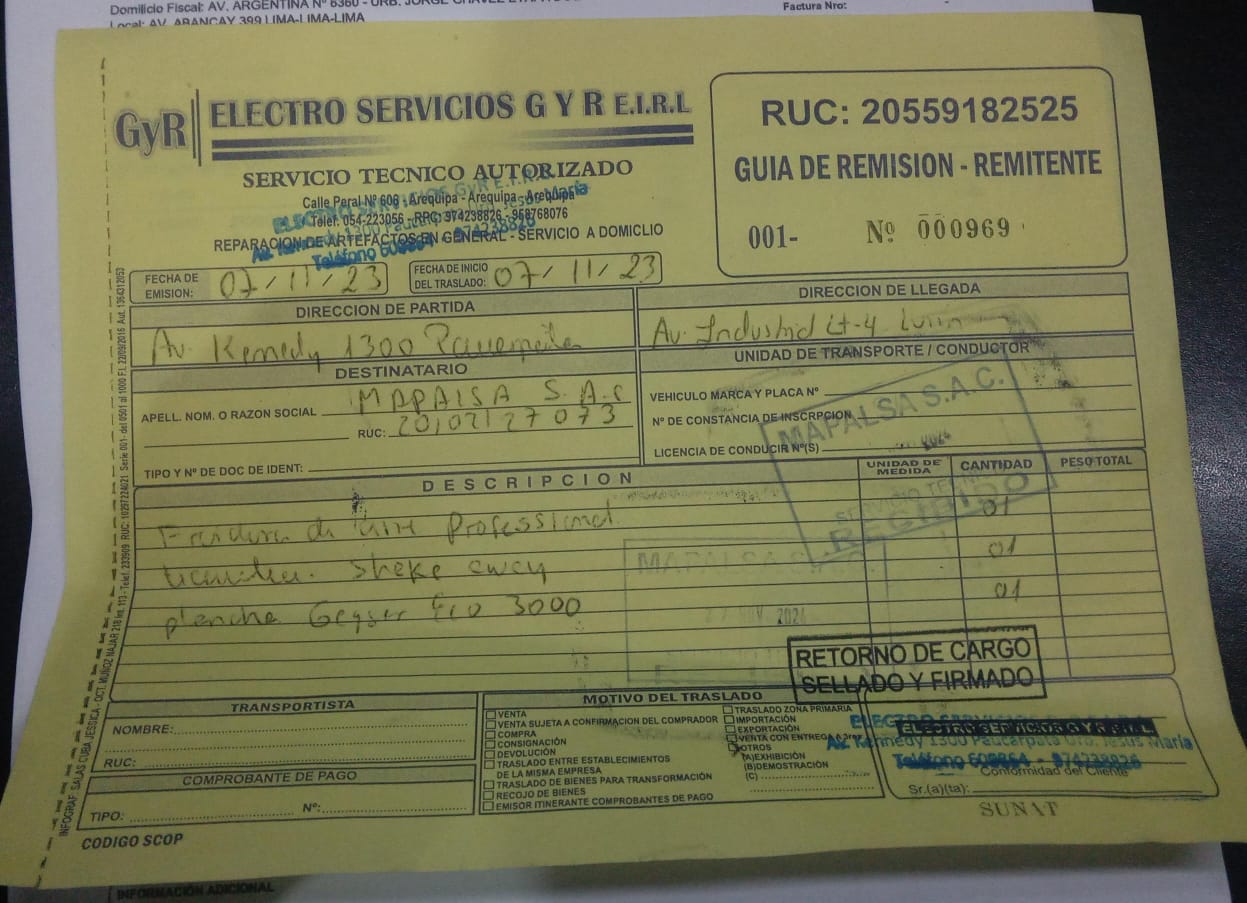 Domicilio Fiscal: AV. ARGENTINA Nº 6360 - URB. JORGE CHAVEZ
Factura Nro:
Local: AV. ABANCAY 399 LIMA-LIMA-LIMA
GyR
ELECTRO SERVICIOS G Y R E.I.R.L
SERVICIO TECNICO AUTORIZADO
Calle Peral Nº 606 - Arequipa - Arequipa - Arequipa
Telef: 054-223056 - RPC: 974238826 - 958768076
REPARACION DE ARTEFACTOS EN GENERAL - SERVICIO A DOMICLIO
RUC: 20559182525
GUIA DE REMISION - REMITENTE
001- Nº 000969
FECHA DE EMISION: 07/11/23
FECHA DE INICIO DEL TRASLADO: 07/11/23
DIRECCION DE PARTIDA
Av. Kennedy 1300
DIRECCION DE LLEGADA
Av. Industrial Lt-4 Lurin
DESTINATARIO
APELL. NOM. O RAZON SOCIAL MAPALSA S.A.C
RUC: 20102127073
TIPO Y Nº DE DOC DE IDENT:
UNIDAD DE TRANSPORTE / CONDUCTOR
VEHICULO MARCA Y PLACA Nº
Nº DE CONSTANCIA DE INSCRPCION
LICENCIA DE CONDUCIR Nº(S)
MAPALSA S.A.C.
RECIBIDO
DESCRIPCION
UNIDAD DE MEDIDA
CANTIDAD
PESO TOTAL
de aire Professional 01
sheke away 01
plancha Geyser Eco 3000 01
MAPALSA S.A.C.
2024
RETORNO DE CARGO
SELLADO Y FIRMADO
TRANSPORTISTA
NOMBRE:
RUC:
COMPROBANTE DE PAGO
TIPO: Nº:
CODIGO SCOP
MOTIVO DEL TRASLADO
VENTA
VENTA SUJETA A CONFIRMACION DEL COMPRADOR
COMPRA
CONSIGNACIÓN
DEVOLUCIÓN
TRASLADO ENTRE ESTABLECIMIENTOS
DE LA MISMA EMPRESA
TRASLADO DE BIENES PARA TRANSFORMACIÓN
RECOJO DE BIENES
EMISOR ITINERANTE COMPROBANTES DE PAGO
TRASLADO ZONA PRIMARIA
IMPORTACIÓN
EXPORTACIÓN
VENTA CON ENTREGA A
OTROS
(A)EXHIBICIÓN
(B)DEMOSTRACIÓN
(C)
ELECTRO SERVICIOS G Y R E.I.R.L
Av. Kennedy 1300 Paucarpata Jesus Maria
Conformidad del Cliente
Sr.(a)(ta):
SUNAT
INFORMACIÓN ADICIONAL